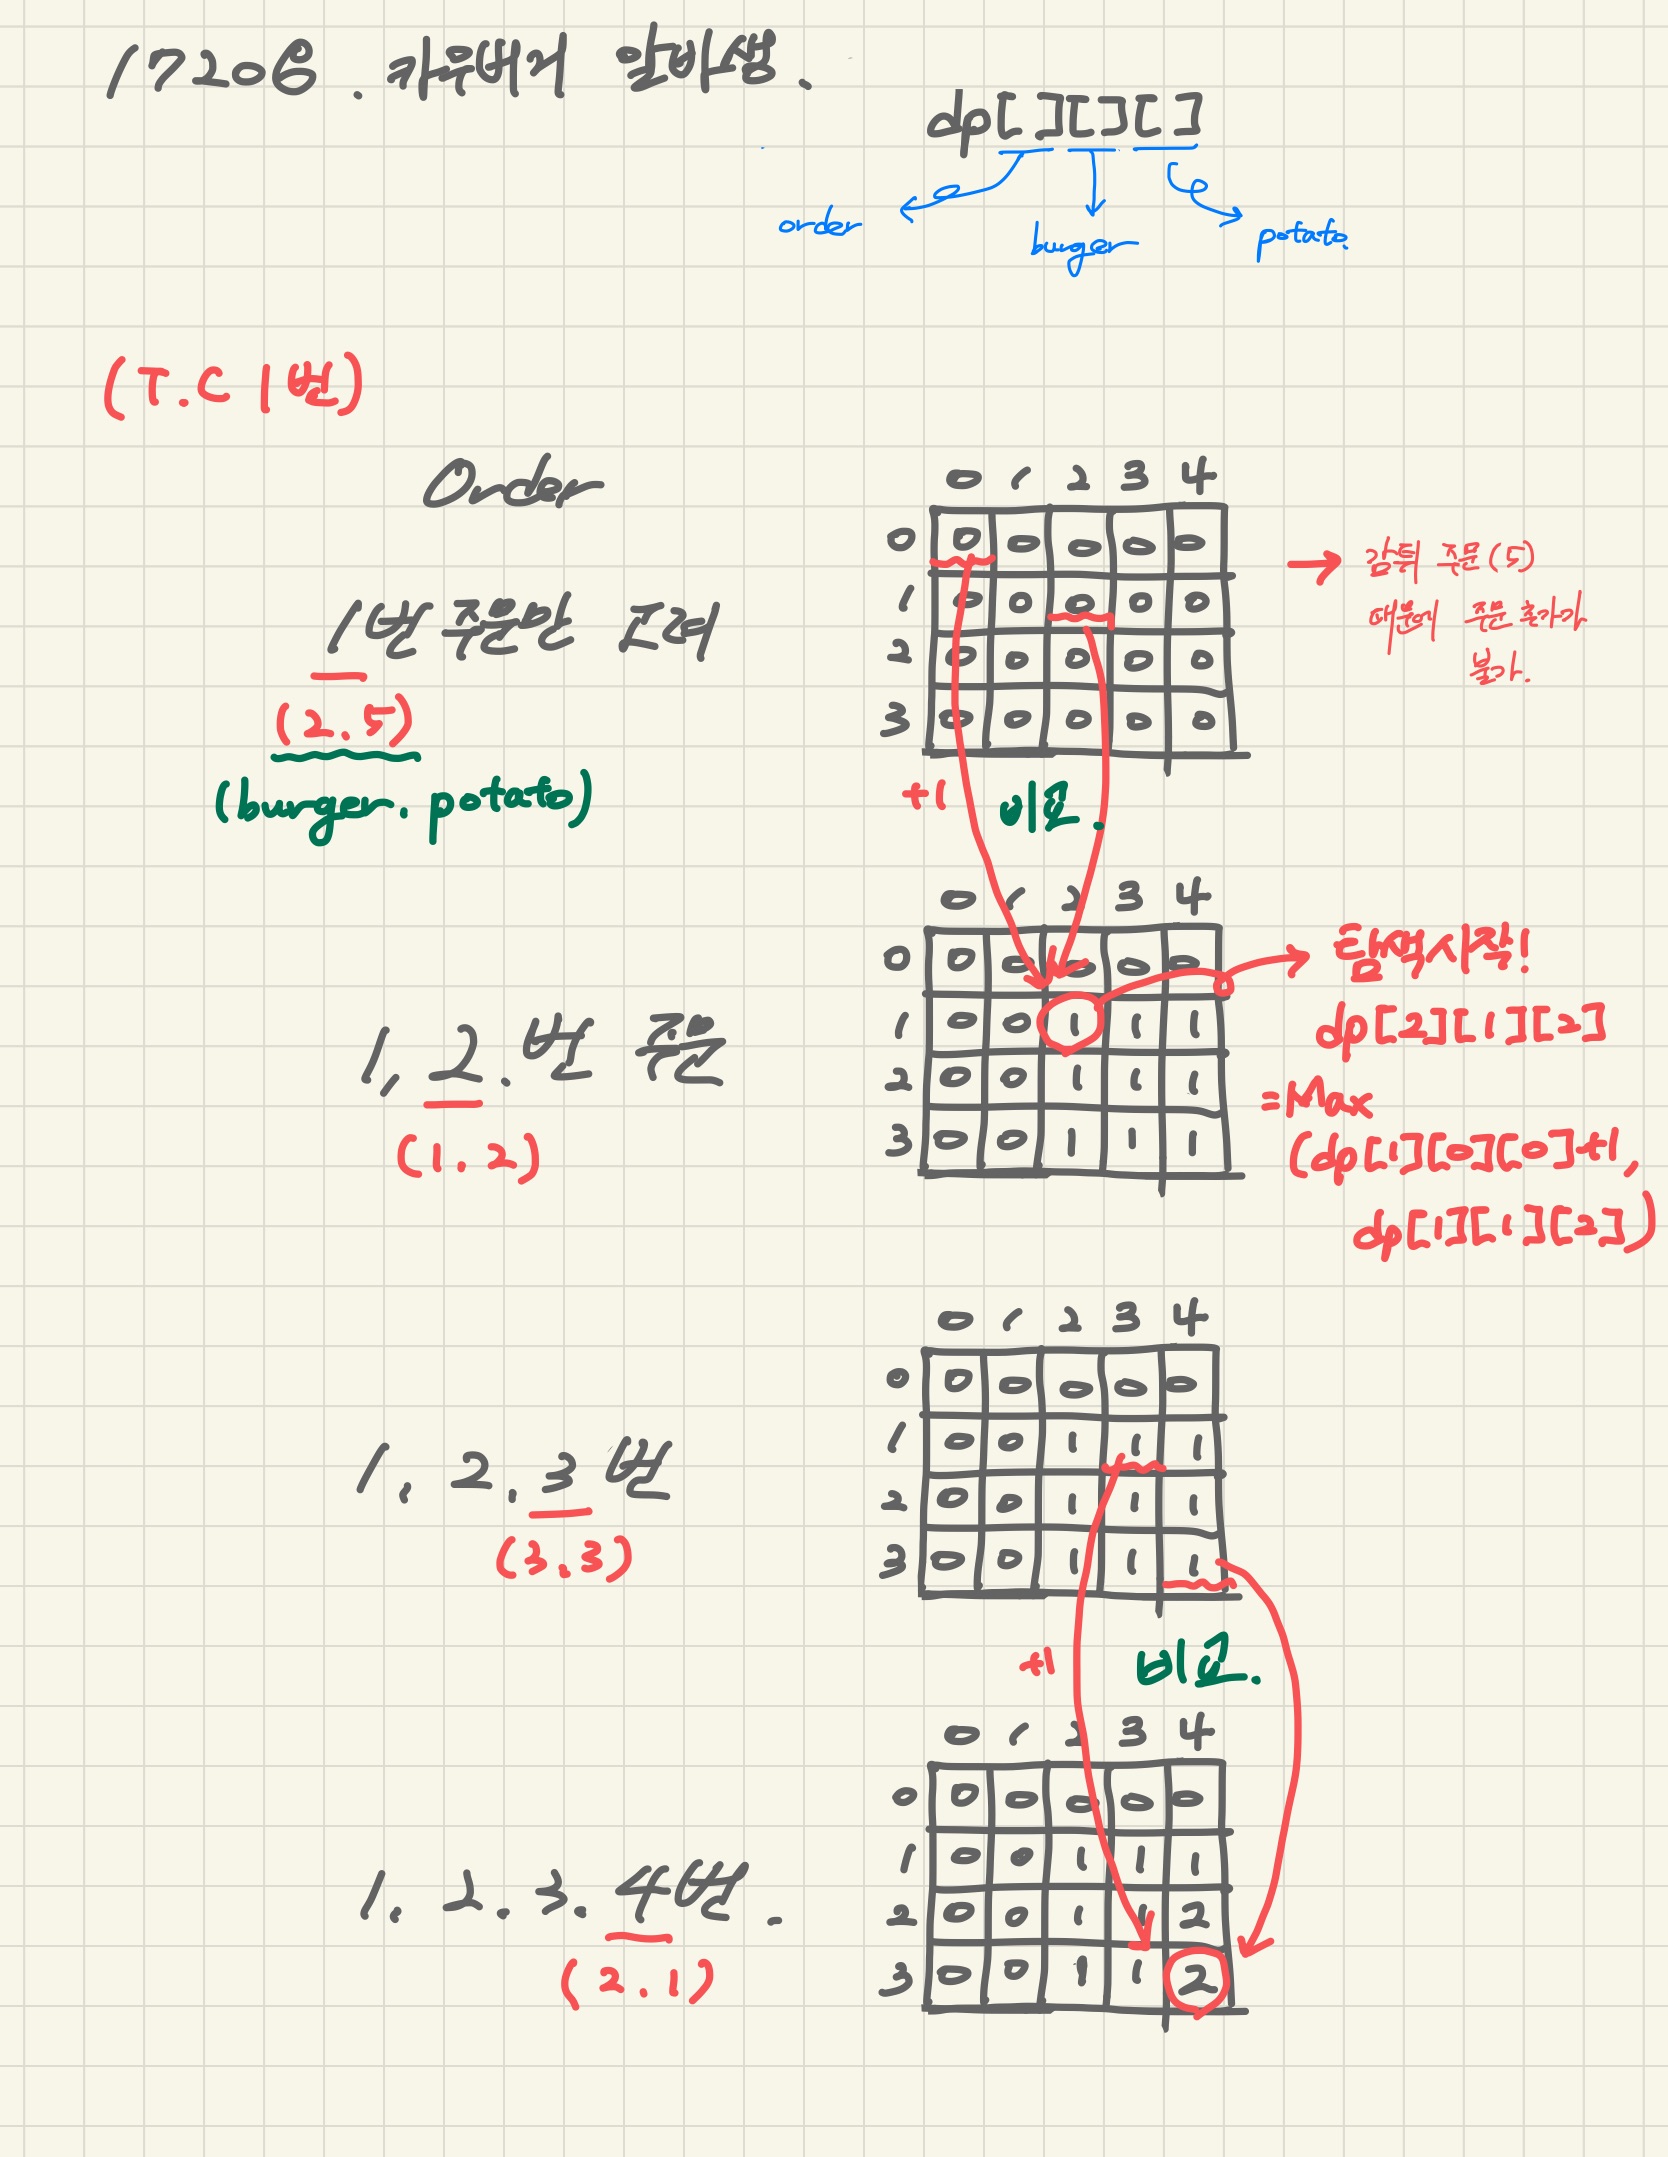 17206. 카우버거 알바생.
dp[ ][ ][ ]
order burger potato.
(T.C 1번)
Order
1번 주문만 고려
(2.5)
(burger. potato)
0 1 2 3 4
0 0 0 0 0 0
1 0 0 0 0 0
2 0 0 0 0 0
3 0 0 0 0 0
→ 감튀 주문(5)
때문에 주문 추가가
불가.
+1 비교.
1, 2.번 주문
(1.2)
0 1 2 3 4
0 0 0 0 0 0
1 0 0 1 1 1
2 0 0 1 1 1
3 0 0 1 1 1
탐색시작!
dp[2][1][2]
=Max
(dp[1][0][0]+1,
dp[1][1][2])
1. 2. 3번
(3.3)
0 1 2 3 4
0 0 0 0 0 0
1 0 0 1 1 1
2 0 0 1 1 1
3 0 0 1 1 1
+1 비교.
1. 2. 3. 4번.
(2.1)
0 1 2 3 4
0 0 0 0 0 0
1 0 0 1 1 1
2 0 0 1 1 2
3 0 0 1 1 2